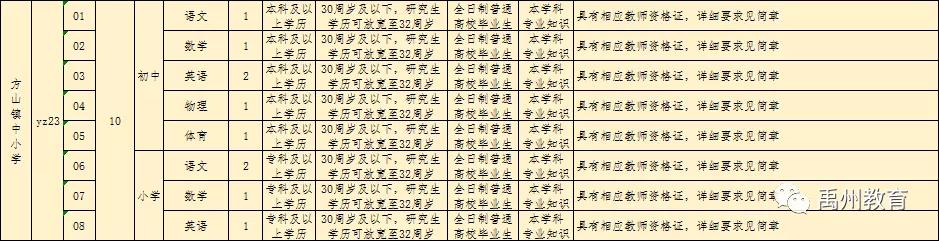 方山镇中小学 yz23 10
01 初中 语文 1 本科及以上学历 30周岁及以下，研究生学历可放宽至32周岁 全日制普通高校毕业生 本学科专业知识 具有相应教师资格证，详细要求见简章
02 数学 1 本科及以上学历 30周岁及以下，研究生学历可放宽至32周岁 全日制普通高校毕业生 本学科专业知识 具有相应教师资格证，详细要求见简章
03 英语 2 本科及以上学历 30周岁及以下，研究生学历可放宽至32周岁 全日制普通高校毕业生 本学科专业知识 具有相应教师资格证，详细要求见简章
04 物理 1 本科及以上学历 30周岁及以下，研究生学历可放宽至32周岁 全日制普通高校毕业生 本学科专业知识 具有相应教师资格证，详细要求见简章
05 体育 1 本科及以上学历 30周岁及以下，研究生学历可放宽至32周岁 全日制普通高校毕业生 本学科专业知识 具有相应教师资格证，详细要求见简章
06 小学 语文 2 专科及以上学历 30周岁及以下，研究生学历可放宽至32周岁 全日制普通高校毕业生 本学科专业知识 具有相应教师资格证，详细要求见简章
07 数学 1 专科及以上学历 30周岁及以下，研究生学历可放宽至32周岁 全日制普通高校毕业生 本学科专业知识 具有相应教师资格证，详细要求见简章
08 英语 1 专科及以上学历 30周岁及以下，研究生学历可放宽至32周岁 全日制普通高校毕业生 本学科专业知识 具有相应教师资格证，详细要求见简章
禹州教育